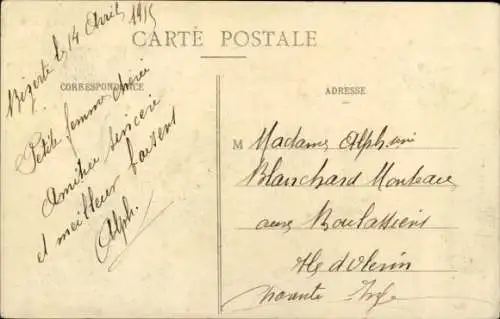 CARTE POSTALE
CORRESPONDANCE
Bizerte le 14 Avril 1915
Petite femme chérie
Amitiée sincère
et meilleur baisers
Alph.
ADRESSE
M Madame Alphsini
Blanchard Monteau
aux
Ile d'Olerin